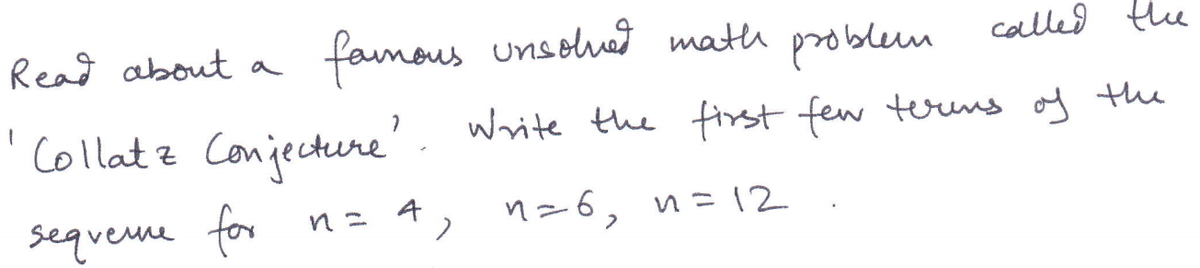 Read about a famous unsolved math problem called the
'Collatz Conjecture'. Write the first few terms of the
sequence for n = 4, n=6, n=12.